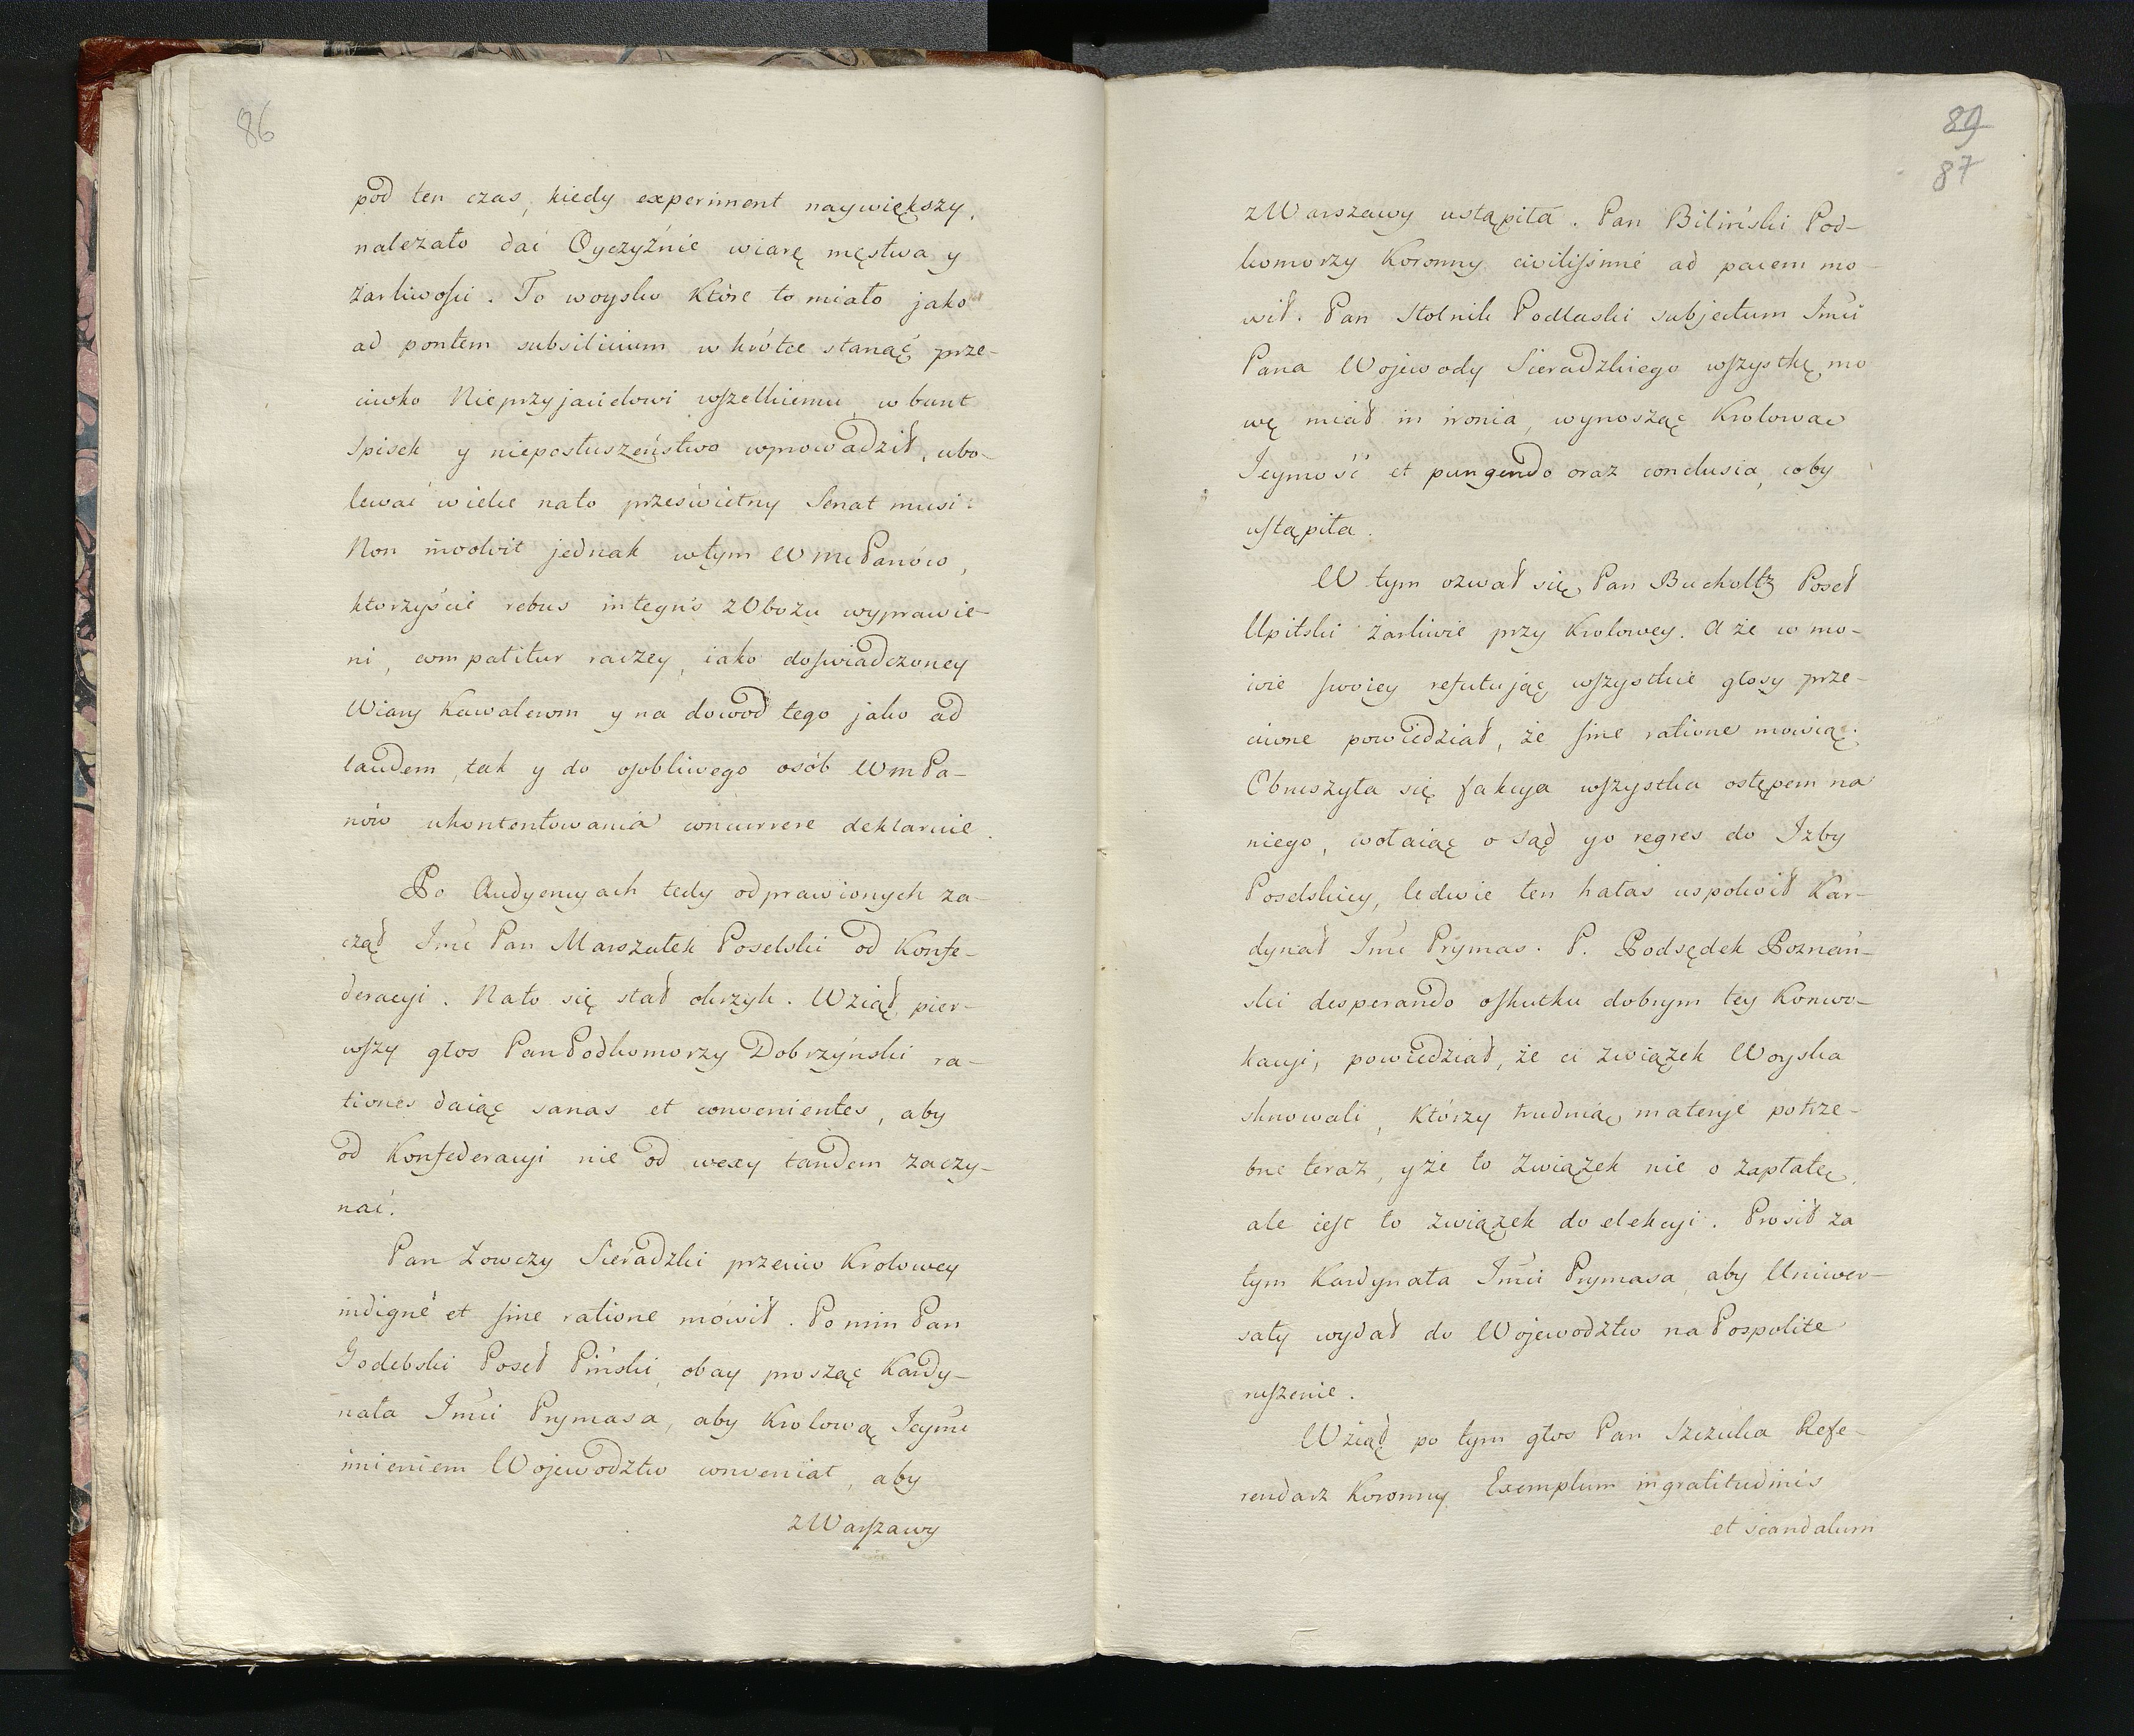 86
pod ten czas, kiedy experiment naywiększy,
należało dać Oyczyźnie wiarę męstwa y
żarliwości. To woysko które to miało jako
ad pontem subsilicium w krótce stanąć prze-
ciwko Nieprzyjacielowi wszelkiemu, w bunt
spisek y nieposłuszeństwo wprowadził, ubo-
lewać wielce nato prześwietny Senat musi:
Non involvit jednak w tym WmPanów,
ktorzyście rebus integris z Obozu wyprawie-
ni, compatitur raczey, iako doświadczoney
Wiary Kawalerom y na dowod tego jako ad
laudem, tak y do osobliwego osób WmPa-
nów ukontentowania concurrere deklaruie.
Po Audyencyach tedy odprawionych za-
czął Jmć Pan Marszałek Poselski od Konfe-
deracyi. Nato się stał okrzyk. Wziął pier-
wszy głos Pan Podkomorzy Dobrzyński ra-
tiones daiąc sanas et convenientes, aby
od Konfederacyi nie od wexy tandem zaczy-
nać.
Pan Łowczy Sieradzki przeciw Krolowey
indignè et sine ratione mówił. Po nim Pan
Godebski Poseł Piński, obay prosząc Kardy-
nała Jmći Prymasa, aby Krolową Jeymć
imieniem Wojewodztw conveniat, aby
z Warszawy
89
87
z Warszawy ustąpiła. Pan Bilinski Pod-
komorzy Koronny civilissimé ad pacem mo-
wił. Pan Stolnik Podlaski subjectum Jmći
Pana Wojewody Sieradzkiego wszystkę mo
wę miał in ironia, wynosząc Krolowae
Jeymość et pungendo oraz conclusia, coby
ustąpiła.
W tym ozwał się Pan Bucholtz Poseł
Upitski żarliwie przy Krolowey. A że w mo-
wie swoiey refutując wszystkie głosy prze-
ciwne powiedział, że sine ratione mowią.
Obruszyła się fakcya wszystka ostępem na
niego, wołaiąc o sąd y o regres do Izby
Poselskiey, ledwie ten hałas uspokoił Kar-
dynał Jmć Prymas. P. Podsędek Poznań-
ski desperando o skutku dobrym tey Konwo-
kacyi, powiedział, że ci związek Woyska
sknowali, którzy trudnią materye potrze-
bne teraz, y że to związek nie o zapłatę,
ale iest to związek do elekcyi. Prosił za
tym Kardynała Jmći Prymasa, aby Uniwer-
sały wydał do Wojewodztw na Pospolite
ruszenie.
Wziął po tym głos Pan Szczuka Refe-
rendarz Koronny. Exemplum ingratitudinis
et scandalum